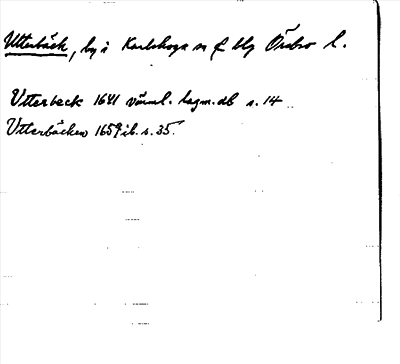 Utterbäck, by i Karlskoga sn o blg Örebro l.
Utterbeck 1641 värml. lagm. db s. 14
Utterbäcken 1659 ib. s. 35.